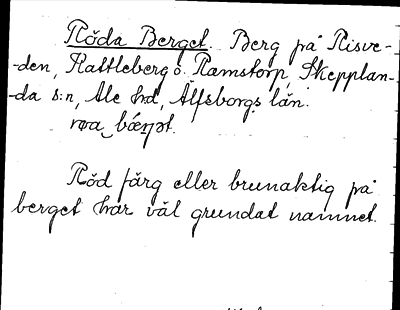 Röda Berget. Berg på Risve-
-den, Kattleberg o. Ramstorp, Skepplan-
-da s:n, Ale hd, Älfsborgs län.
Röd färg eller brunaktig på
berget har väl grundat namnet.